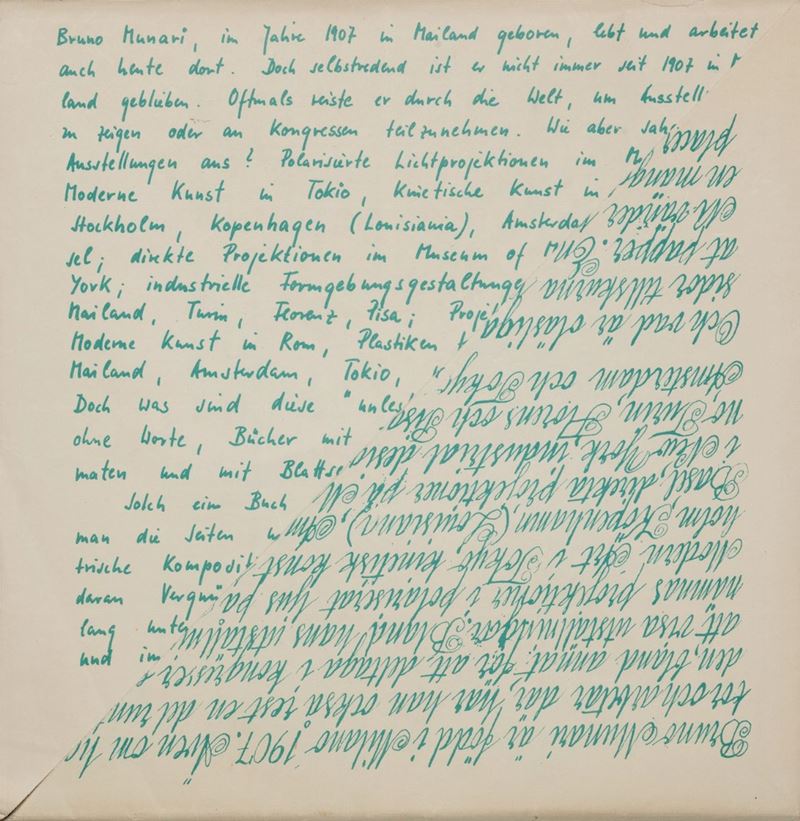 Bruno Munari, im Jahre 1907 in Mailand geboren, lebt und arbeitet
auch heute dort. Doch selbstredend ist er nicht immer seit 1907 in
land geblieben. Oftmals reiste er durch die Welt, um Ausstell
zu zeigen oder an Kongressen teilzunehmen. Wie aber sah
Ausstellungen aus? Polarisierte Lichtprojektionen im M
Moderne Kunst in Tokio, Kinetische Kunst in
Stockholm, Kopenhagen (Louisiania), Amsterda
sel; direkte Projektionen im Museum of M
York; industrielle Formgebungsgestaltung
Mailand, Turin, Florenz, Pisa; Proje
Moderne Kunst in Rom, Plastiken
Mailand, Amsterdam, Tokio,
Doch was sind diese "unles
ohne Worte, Bücher mit
maten und mit Blattse
Solch ein Buch
man die Seiten
trische Komposit
daran Vergnü
lang unte
und im
Bruno Munari är född i Milano 1907. Även om
bor och arbetar där, har han också rest en del run
den, bland annat för att deltaga i kongresser
att visa utställningar. Bland hans utställnin
nämnas projektioner i polariserat ljus på
Modern Art i Tokyo kinetisk konst
holm, Köpenhamn (Louisiana), Am
Basel, direkta projektioner på M
i New York, industrial desig
no, Turin, Florens och Pisa
Amsterdam och Tokyo
Och vad är oläsliga
sidor tillskurna
at papper. En
vänder
en mängd
placer